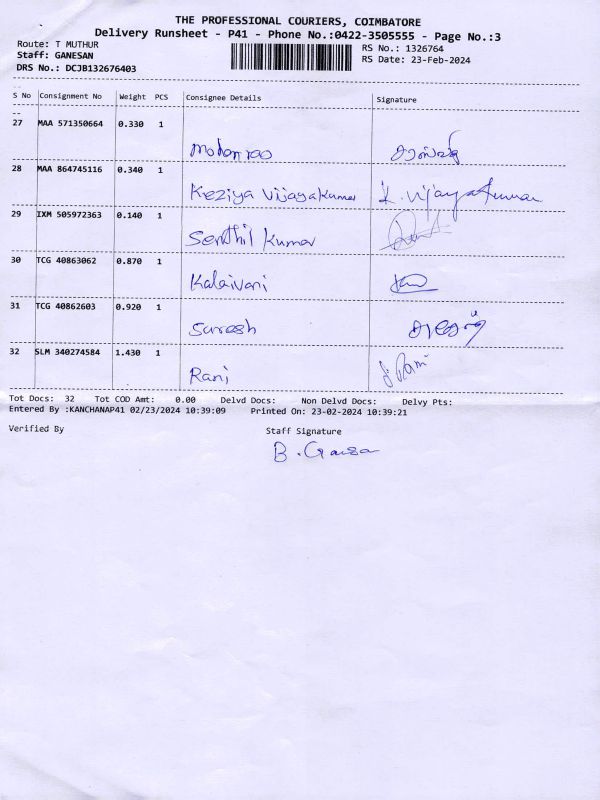 THE PROFESSIONAL COURIERS, COIMBATORE
Delivery Runsheet - P41 - Phone No.:0422-3505555 - Page No.:3
Route: T MUTHUR RS No.: 1326764
Staff: GANESAN RS Date: 23-Feb-2024
DRS No.: DCJB132676403
S No Consignment No Weight PCS Consignee Details Signature
27 MAA 571350664 0.330 1
Mohan rao
28 MAA 864745116 0.340 1
Keziya Vijayakumar K. Vijayakumar
29 IXM 505972363 0.140 1
Senthil Kumar
30 TCG 40863062 0.870 1
Kalaivani
31 TCG 40862603 0.920 1
Suresh
32 SLM 340274584 1.430 1
Rani S. Rani
Tot Docs: 32 Tot COD Amt: 0.00 Delvd Docs: Non Delvd Docs: Delvy Pts:
Entered By :KANCHANAP41 02/23/2024 10:39:09 Printed On: 23-02-2024 10:39:21
Verified By Staff Signature